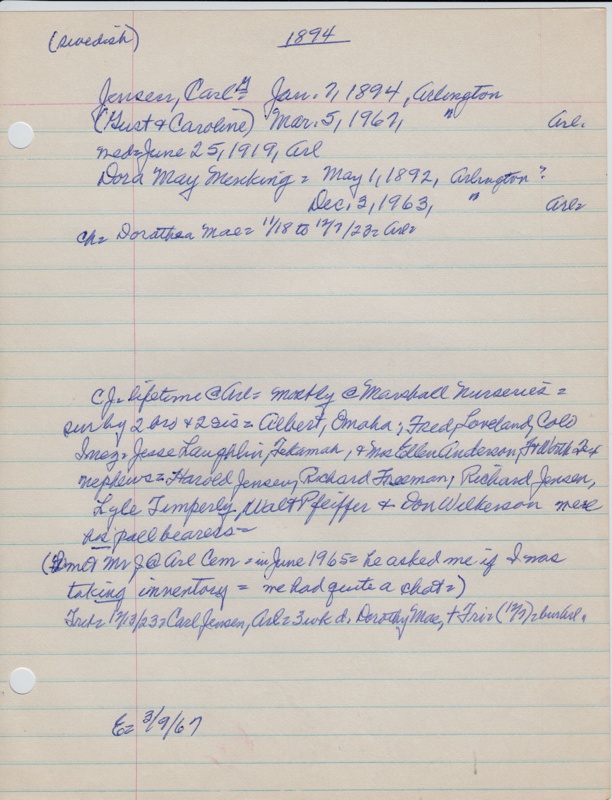 (Swedish)
1894
Jensen, Carl G = Jan. 7, 1894, Arlington
(Gust & Caroline) Mar. 5, 1967, " Arl.
med = June 25, 1919, Arl
Dora May Menking = May 1, 1892, Arlington ?
Dec. 3, 1963, " Arl =
ch = Dorothea Mae = 11/18 to 12/7/23 = Arl =
CJ = lifetime @ Arl = mostly @ Marshall Nurseries =
sur by 2 bro & 2 sis = Albert, Omaha; Fred, Loveland, Colo
Inez = Jesse Laughlin, Tekamah, & Mrs Ellen Anderson, Ft Worth Tex
nephews = Harold Jensen, Richard Freeman, Richard Jensen,
Lyle Timperly, Walt Pfeiffer & Don Wilkerson were
his pall bearers =
(I met Mr J @ Arl Cem = in June 1965 = he asked me if I was
taking inventory = we had quite a chat =)
12/13/23 = Carl Jensen, Arl = 3 wk d. Dorothy Mae, + Fri = (12/7) = bur Arl.
E = 3/9/67